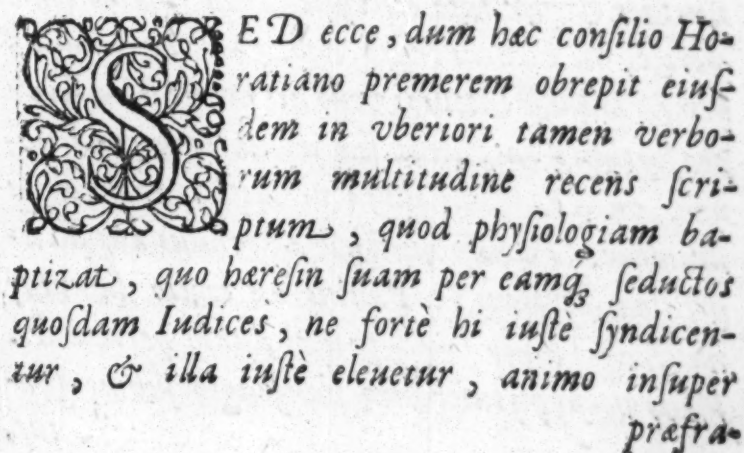 SED ecce, dum hæc conſilio Ho-
ratiano premerem obrepit eiuſ-
dem in vberiori tamen verbo-
rum multitudine recens ſcri-
ptum, quod phyſiologiam ba-
ptizat, quo hæreſin ſuam per eamq́; ſeductos
quoſdam Iudices, ne fortè hi iuſtè ſyndicen-
tur, & illa iuſtè eleuetur, animo inſuper
præfra-